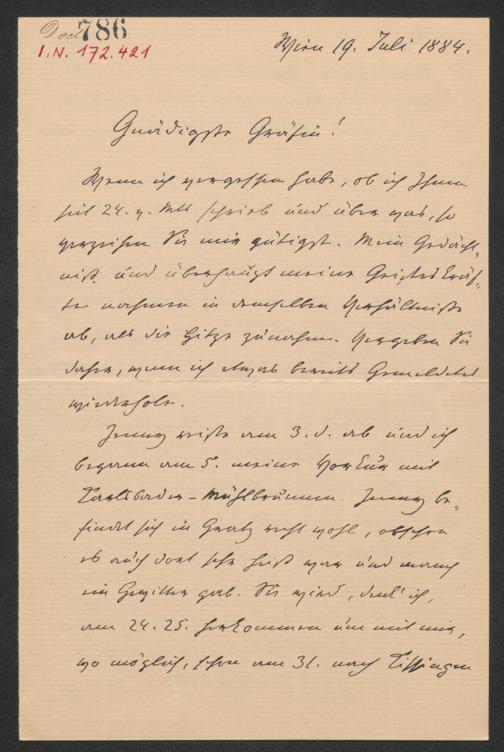 Doel 786
I.N. 172.421
Wien 19. Juli 1884.
Gnädigste Gräfin!
Wenn ich vergessen habe, ob ich Ihnen
seit 24. v. Mts schrieb und über was, so
verzeihen Sie mir gütigst. Mein Gedächt-
niß und überhaupt meine Geisteskräf-
te nahmen in demselben Verhältniße
ab, als die Hitze zunahm. Vergeben Sie
daher, wenn ich etwas bereits Gemeldetes
wiederhole.
Jenny reiste am 3. d. ab und ich
begann am 5. meine Vorkur mit
Karlsbader-Mühlbrunnen. Jenny be-
findet sich in Gratz recht wohl, obschon
es auch dort sehr heiß war und manch
ein Gewitter gab. Sie wird, denk' ich,
am 24. 25. herkommen um mit mir,
wo möglich, schon am 31. nach Kissingen